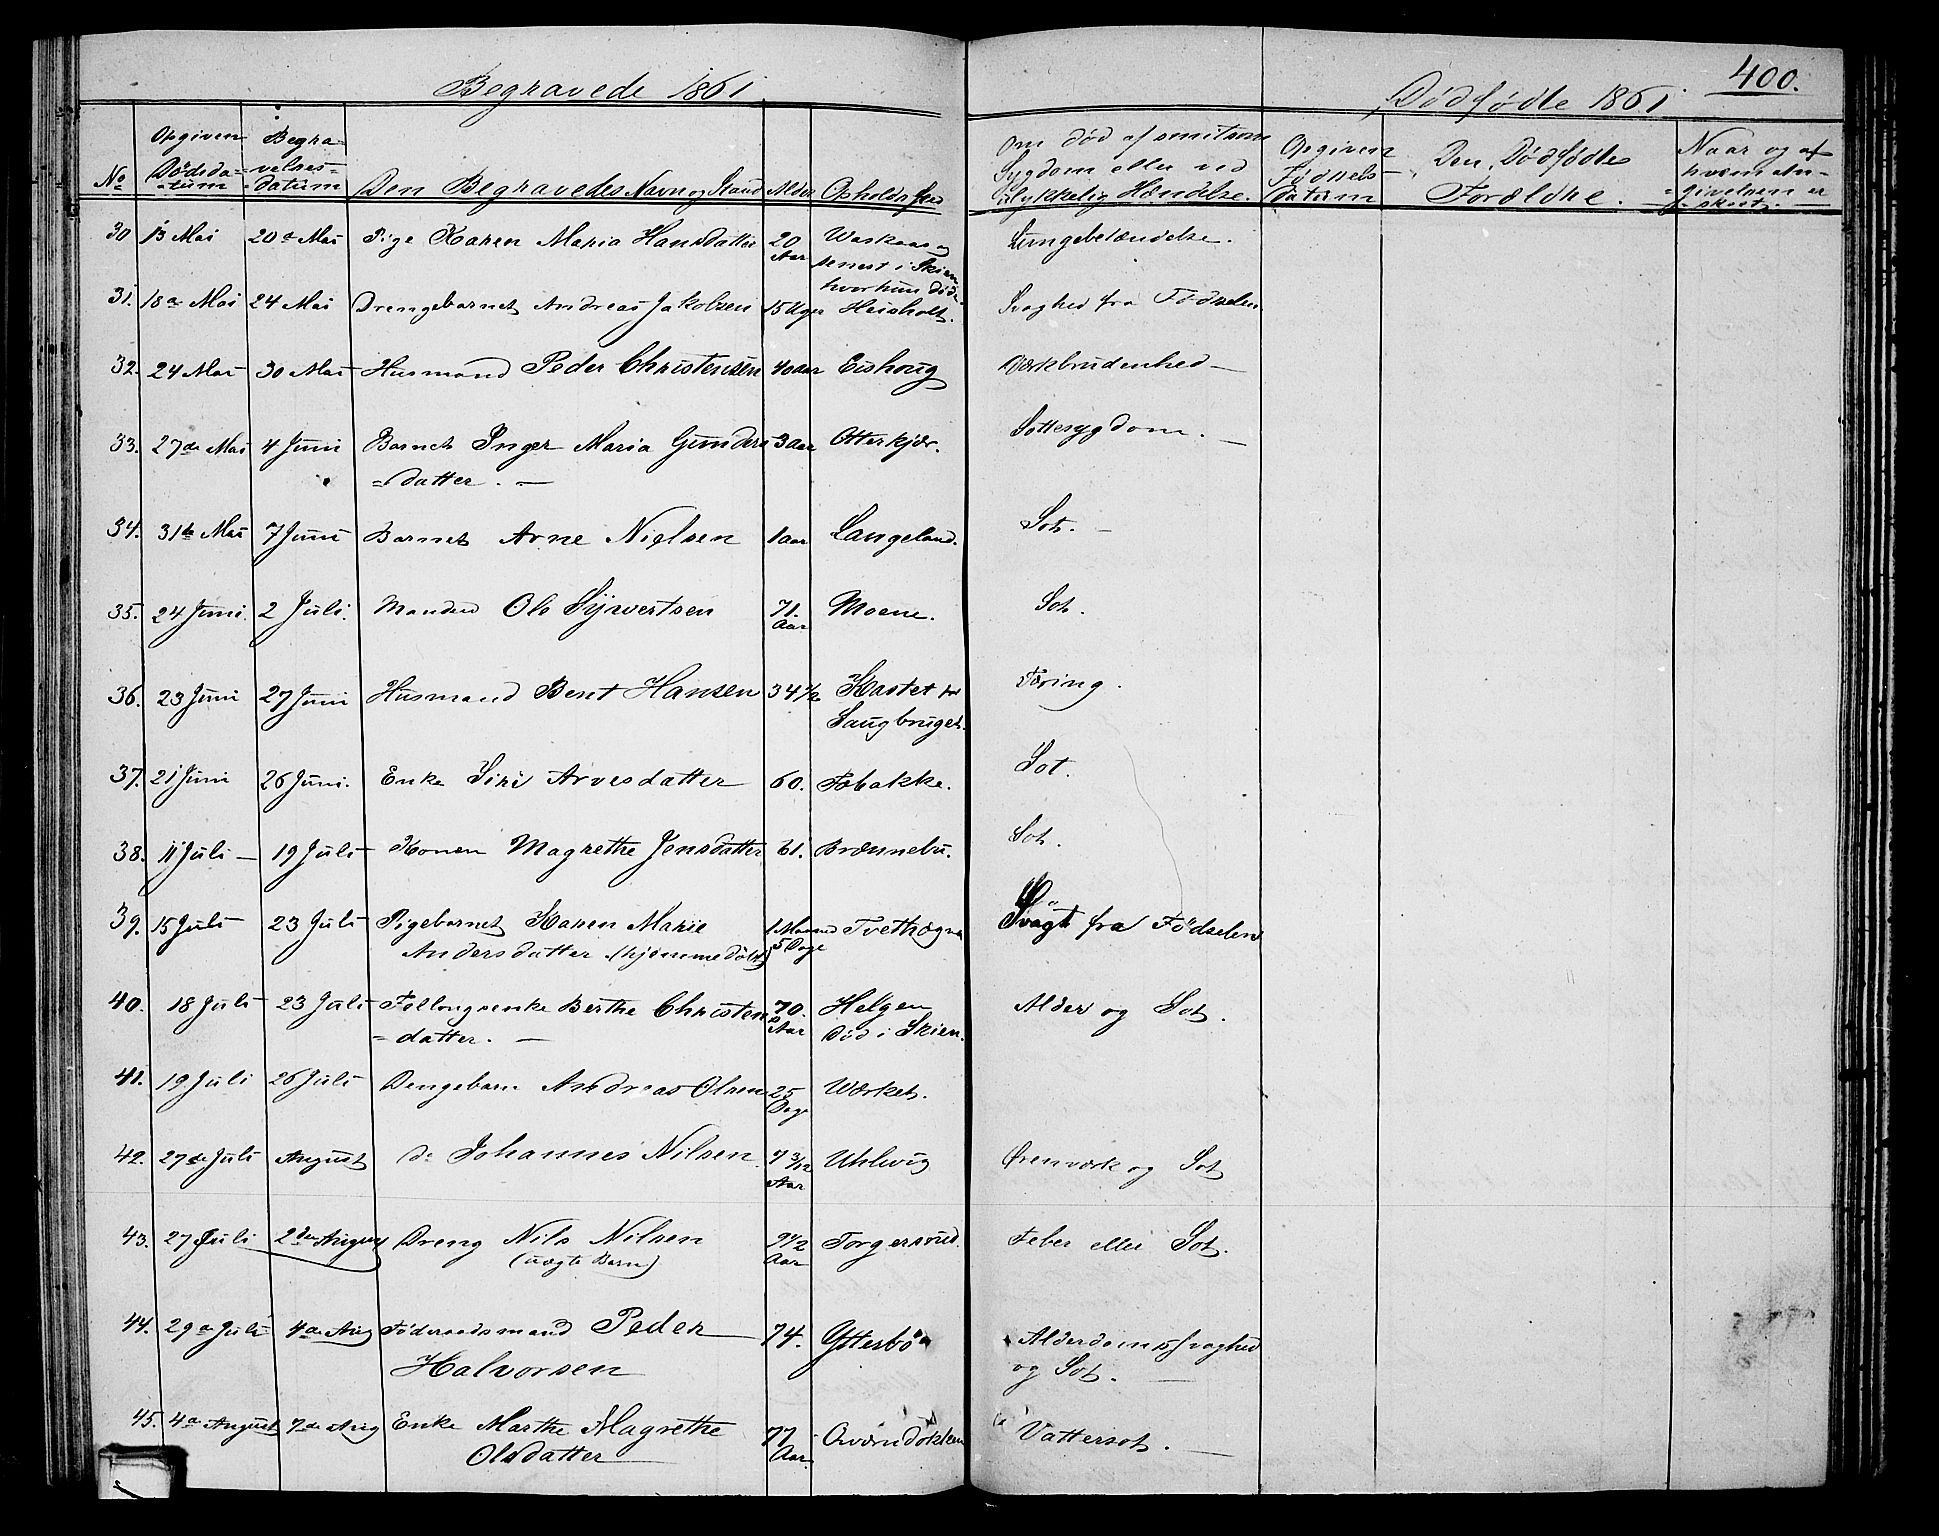 Begravede 1861
400.
Dødfødte 1861
No
Opgiven Dødsdatum
Begravelsesdatum
Den Begravedes Navn og Stand
Alder
Opholdssted
Om død af smitsom Sygdom eller ved ulykkelig Hændelse.
Opgiven Fødselsdatum
Den Dødfødtes Forældre.
Naar og af hvem Angivelsen er skeet.
30 13 Mai 20de Mai Pige Karen Maria Hansdatter 20 Aar senest i Skien hvor hun døde. Lungebetændelse.
31. 18de Mai 24 Mai Drengebarnet Andreas Jakobsen 15 Uger Heisholt. Svaghed fra Fødselen.
32. 24 Mai 30 Mai Husmand Peder Christensen 40 aar Eishoug Værkbrudenhed —
33. 27de Mai 4 Juni Barnet Inger Maria Gunders 3 aar Otterkjær. Sottesygdom. —
=datter. —
34. 31te Mai 7 Juni Barnet Arne Nielsen 1 aar Langeland. Sot. —
35. 24 Juni. 2 Juli. Manden Ole Syvertsen 71. Aar Moene. Sot.
36. 23 Juni 27 Juni Husmand Bent Hansen 34 1/2 Kastet Tæring.
Saugbruget.
37. 21 Juni 26 Juni. Enke Siri Arvesdatter 60. Sot.
38. 11 Juli — 19 Juli Konen Magrethe Jensdatter 61. Brænnebu. Sot.
39. 15 Juli 23 Juli Pigebarnet Karen Marie 1 Maaned Svagt fra Fødselen
Andersdatter (hjemmedøbt) 5 Dage
40. 18 Juli 23 Juli Føllougsenke Berthe Christen 70. Helgen Alder og Sot.
=datter. — Aar Død i Skien.
41. 19 Juli 26 Juli Dengebarn Andreas Olsen 25 Dage Værket.
42. 27de Juli August do Johannes Nilsen 7 3/12 Aar Uhlevig Ørenværk og Sot
43. 27 Juli 2den August Dreng Nils Nilsen 9 1/2 Aar Torgersrud. Feber eller Sot.
(uægte Barn)
44. 29de Juli 4de Aug Føderaadsmand Peder 74. Ytterbø Alderdomssvaghed
Halvorsen og Sot. —
45. 4de August 7de Aug Enke Marthe Magrethe 77 Aar. Vattersot. —
Olsdatter